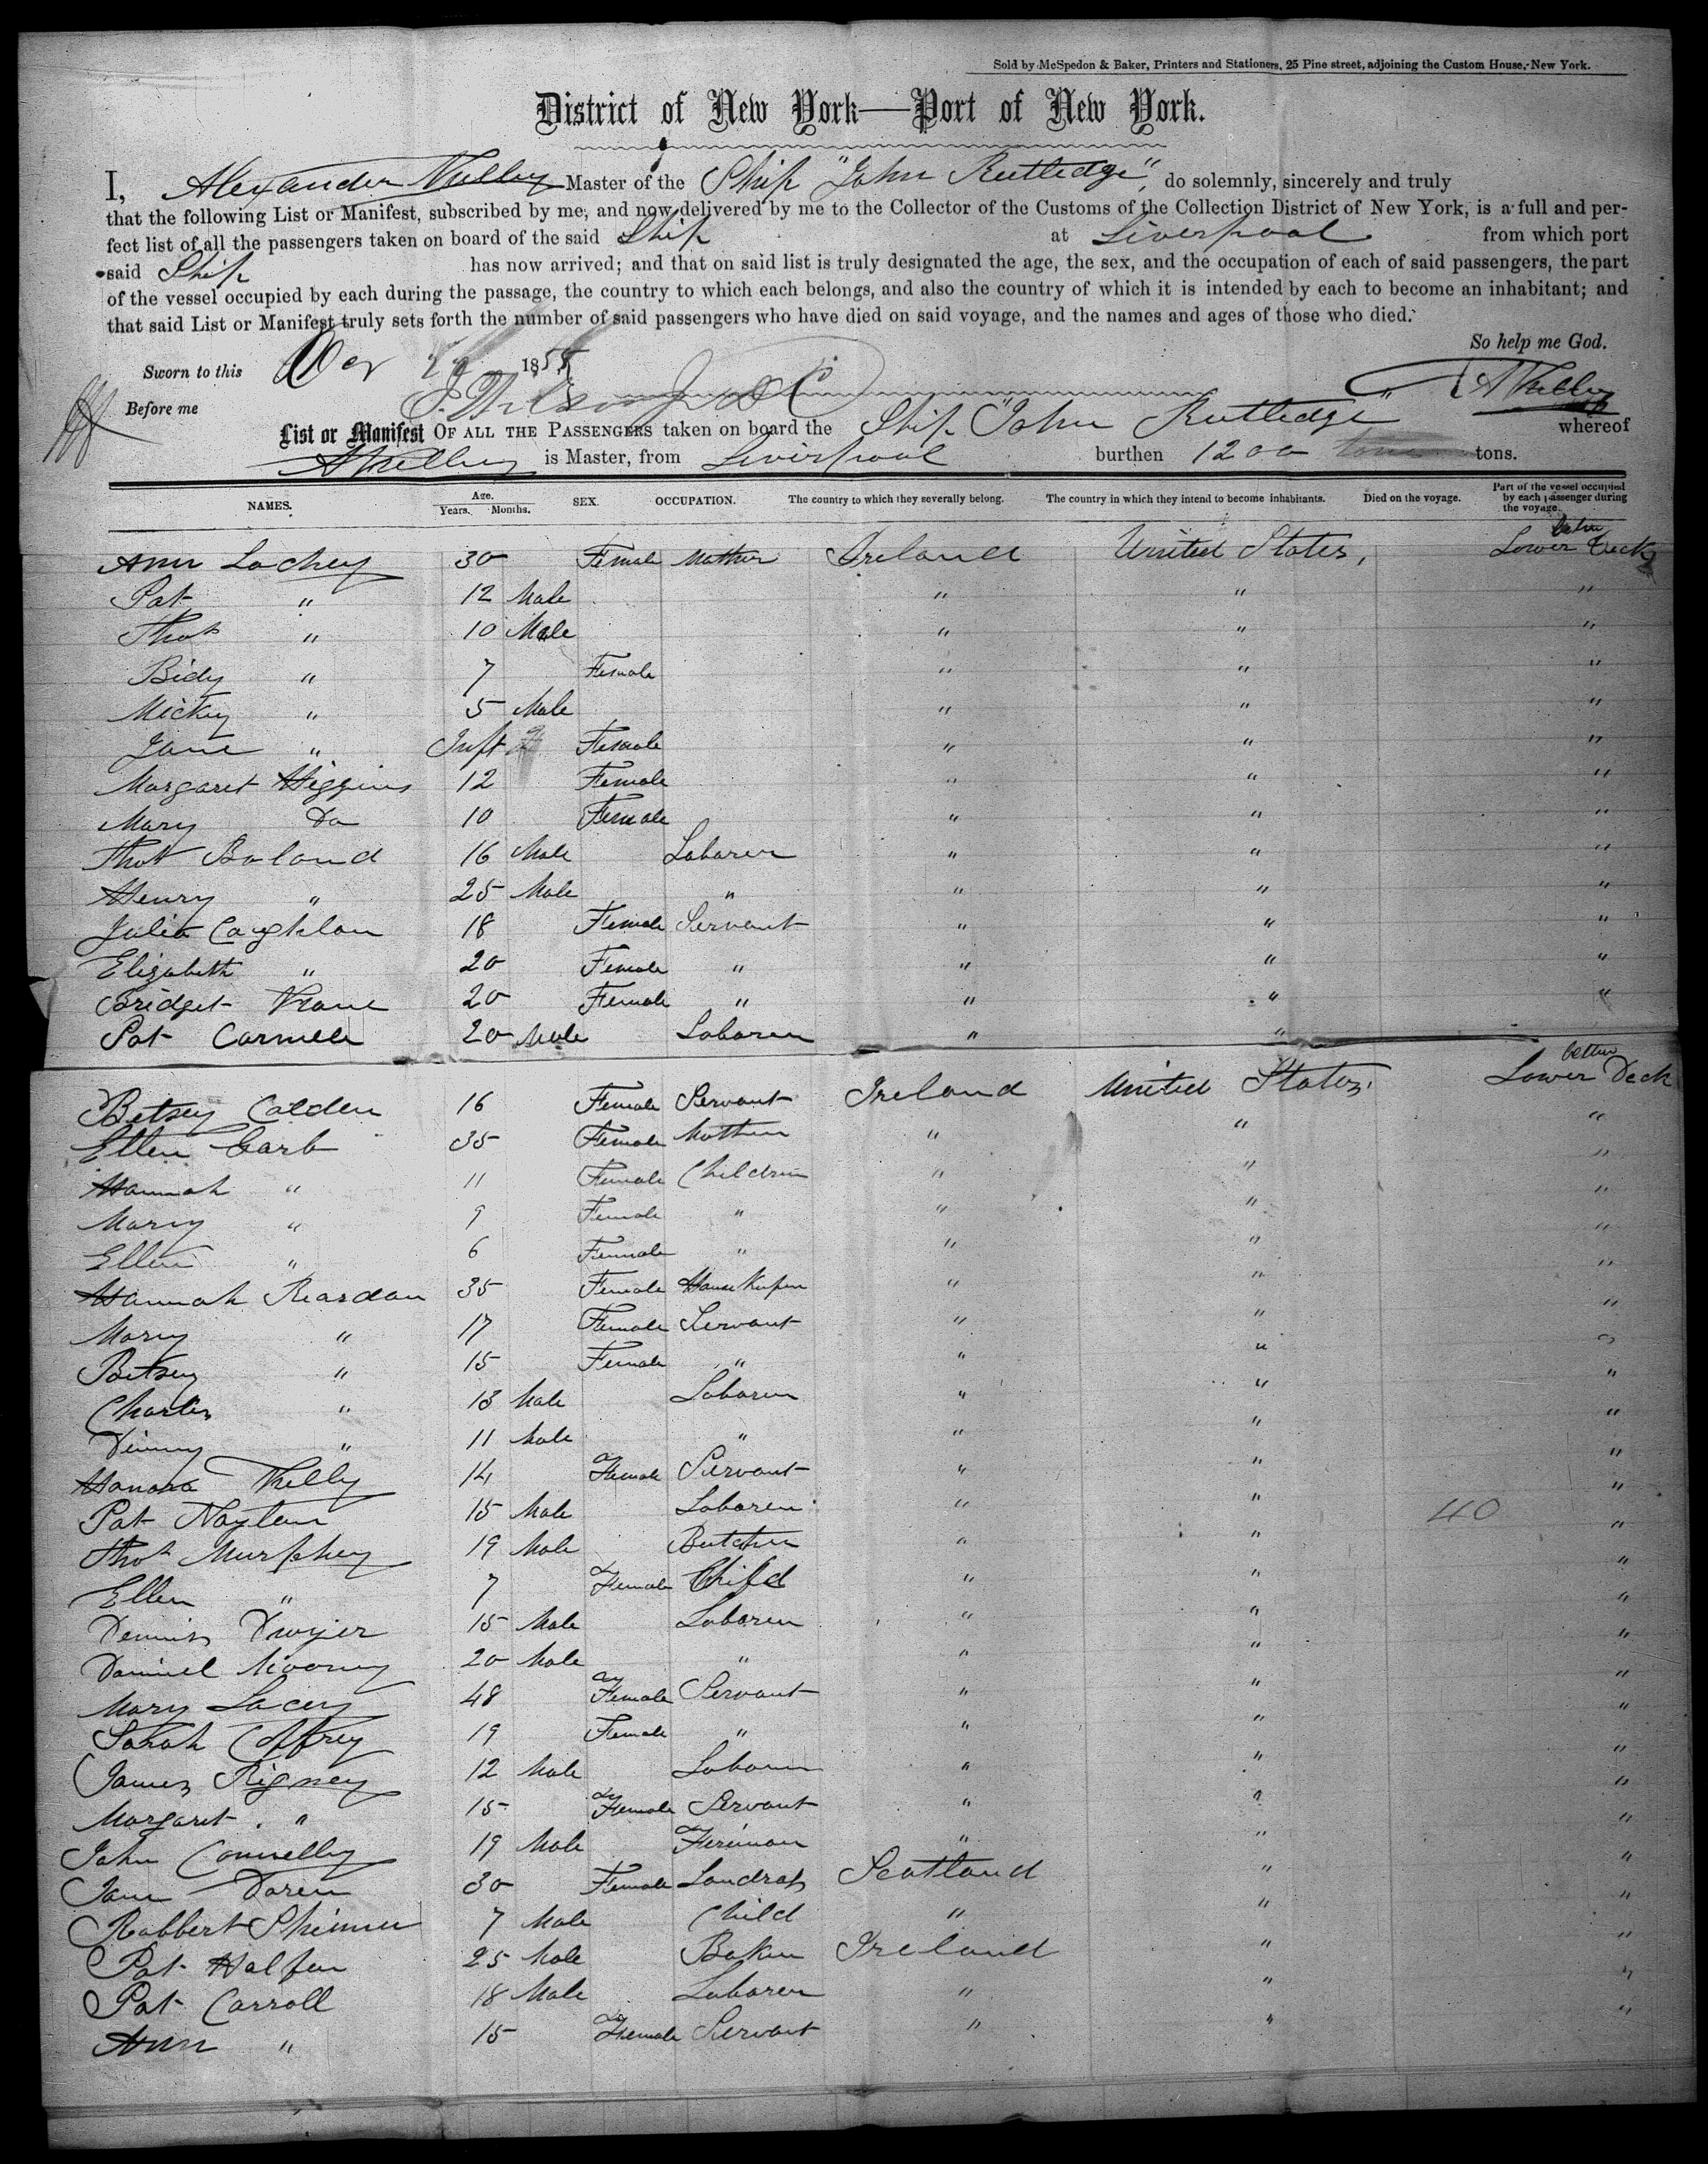 Sold by McSpedon & Baker, Printers and Stationers, 25 Pine street, adjoining the Custom House, New York.
District of New York—Port of New York.
I, Alexander Kelley Master of the Ship "John Rutledge", do solemnly, sincerely and truly
that the following List or Manifest, subscribed by me, and now delivered by me to the Collector of the Customs of the Collection District of New York, is a full and per-
fect list of all the passengers taken on board of the said Ship at Liverpool from which port
said Ship has now arrived; and that on said list is truly designated the age, the sex, and the occupation of each of said passengers, the part
of the vessel occupied by each during the passage, the country to which each belongs, and also the country of which it is intended by each to become an inhabitant; and
that said List or Manifest truly sets forth the number of said passengers who have died on said voyage, and the names and ages of those who died.
So help me God.
Sworn to this 1855
Before me A Kelley
List or Manifest OF ALL THE PASSENGERS taken on board the Ship "John Rutledge" whereof
A Kelley is Master, from Liverpool burthen 1200 tons tons.
NAMES. Age. Years. Months. SEX. OCCUPATION. The country to which they severally belong. The country in which they intend to become inhabitants. Died on the voyage. Part of the vessel occupied by each passenger during the voyage.
Ann Lachey 30 Female Mother Ireland United States, Lower Deck
Pat " 12 Male " " "
Thos " 10 Male " " "
Bidy " 7 Female " " "
Mickey " 5 Male " " "
Jane " Inft Female " " "
Margaret Higgins 12 Female " " "
Mary Do 10 Female " " "
Thos Boland 16 Male Laborer " " "
Henry " 25 Male " " " "
Julia Coughlan 18 Female Servant " " "
Elizabeth " 20 Female " " " "
Bridget Kane 20 Female " " " "
Pat 20 Male Laborer " "
Betsey Calden 16 Female Servant Ireland United States, Lower Deck
Ellen Carb 35 Female Mother " " "
Hannah " 11 Female Children " " "
Mary " 9 Female " " " "
Ellen " 6 Female " " " "
Hannah Reardan 35 Female House Keeper " " "
Mary " 17 Female Servant " " "
Betsey " 15 Female " " " "
Charles " 13 Male Laborer " " "
Denny " 11 Male " " " "
Hanora Kelly 14 Female Servant " " "
Pat Naylan 15 Male Laborer " " 40 "
Thos Murphey 19 Male Butcher " " "
Ellen " 7 Female Child " " "
Dennis Dwyer 15 Male Laborer " " "
Daniel Mooney 20 Male " " " "
Mary Lacey 48 Female Servant " " "
Sarah Coffrey 19 Female " " " "
James Rigney 12 Male Laborer " " "
Margaret " 15 Female Servant " " "
John Connelley 19 Male Fireman " " "
Jane Doren 30 Female Landrass Scotland " "
Robbert Skinner 7 Male Child " " "
Pat Halfen 25 Male Baker Ireland " "
Pat Carroll 18 Male Laborer " " "
Ann " 15 Female Servant " " "